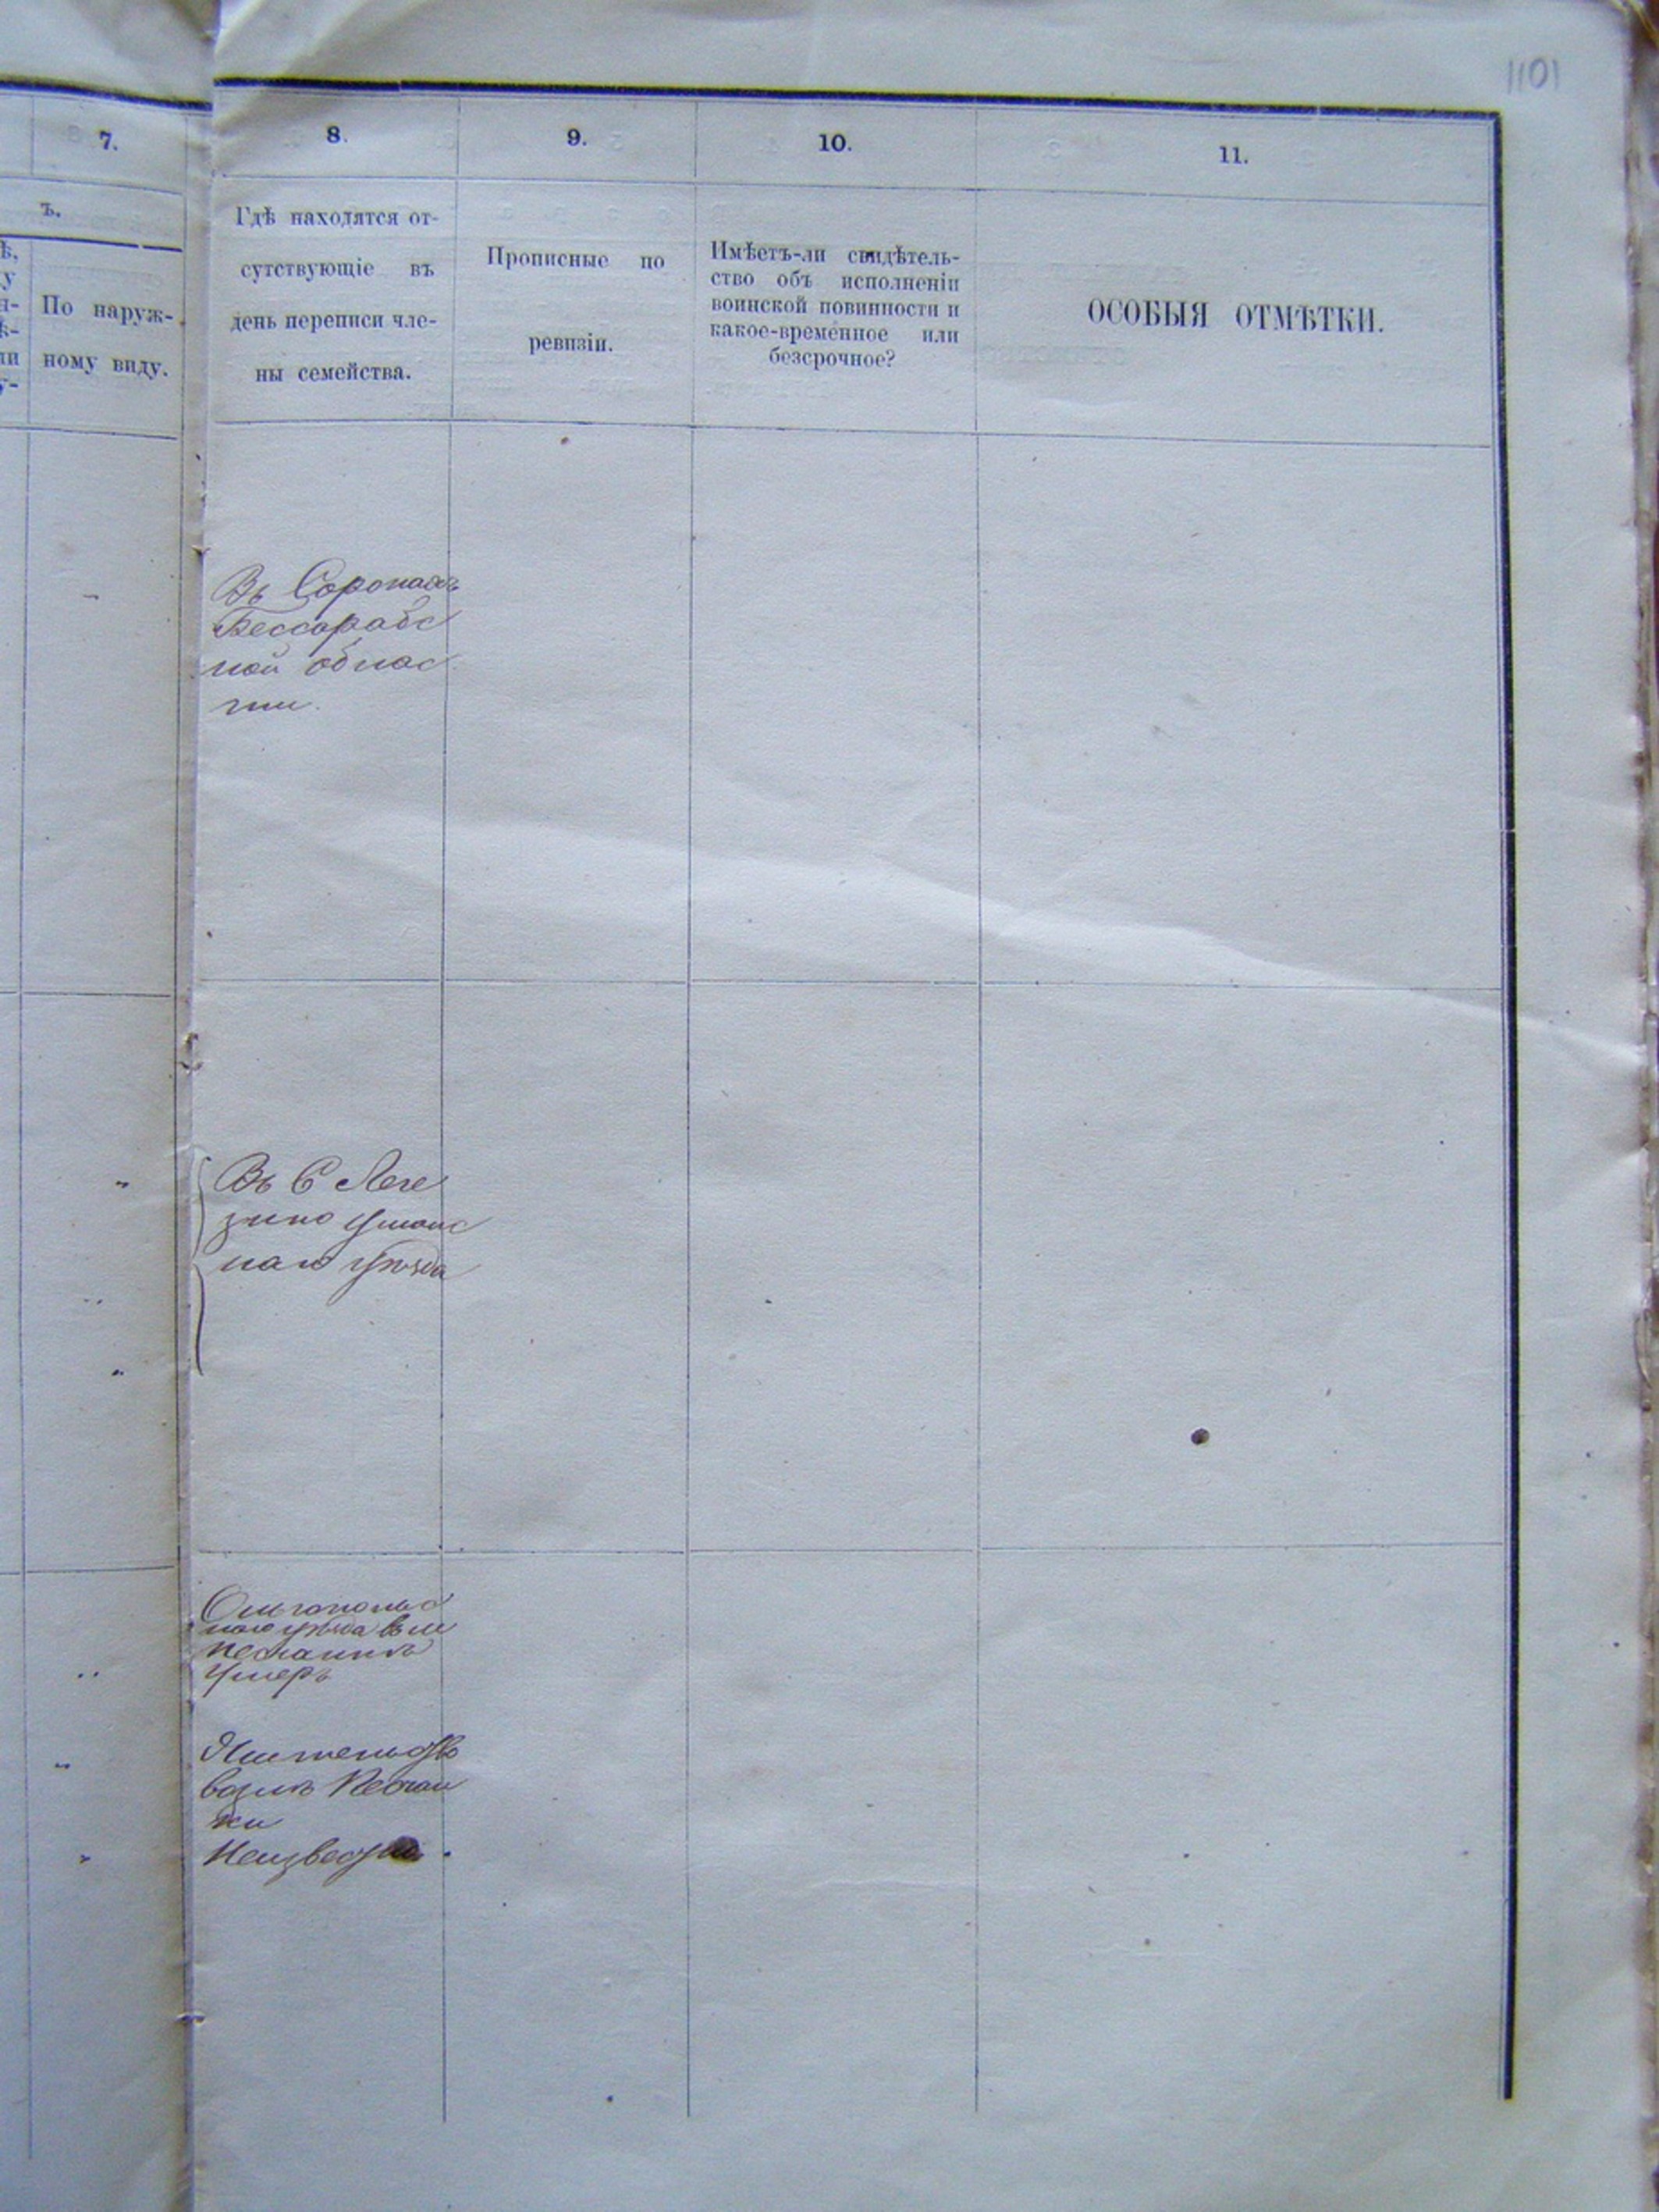 1101
7.
8.
9.
10.
11.
ъ.
По наруж-
ному виду.
Гдѣ находятся от-
сутствующіе въ
день переписи чле-
ны семейства.
Прописные по
ревизіи.
Имѣетъ-ли свидѣтель-
ство объ исполненіи
воинской повинности и
какое-временное или
безсрочное?
ОСОБЫЯ ОТМѢТКИ.
Въ Сорокахъ
Бессарабс
кой облас
ти.
Въ С Леге
зино Уманс
каго Уѣзда
Ольгопольс
каго уѣзда въ м
Песчанкѣ
Умеръ
Жительство
Песчан
ки
Неизвестно